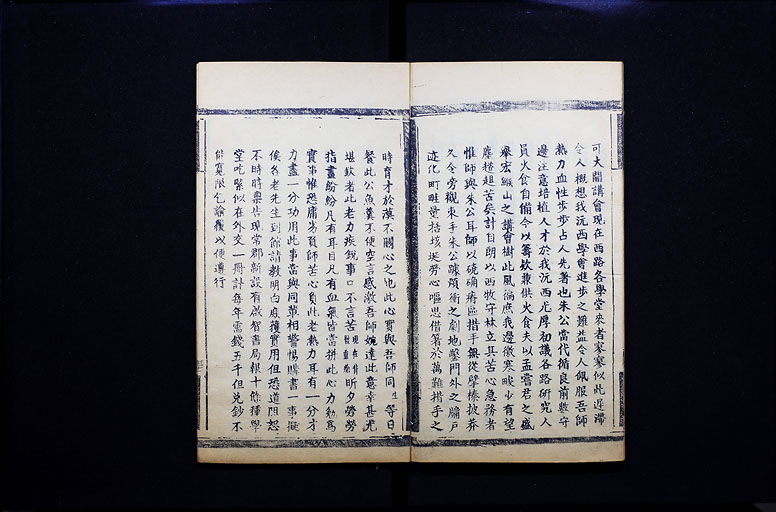 可大關講會現在西路各學堂來者寥寥似此遲滯
令人慨想我沅西學會進步之難益令人佩服吾師
熱力血性步步占人先著也朱公當代循良前數守
邊注意培植人才於我沅西尤厚初議各路研究人
員火食自備今以籌欵兼供火食夫以孟嘗君之盛
舉宏緱山之講會樹此風徧庶我邊徼寒畯少有望
塵趑趄苦矣計自朗以西牧守林立具苦心急務者
惟師與朱公耳師以硗确瘠區措手無從擘榛披莽
久令旁觀束手朱公躑煩衝之劇地鑿門外之牖戶
迹化町畦量括垓埏勞心嘔思借箸於萬難措手之
時育才於漠不關心之也此心實與吾師同等日
餐此公魚羹不使空言感激吾師婉達此意幸甚尤
堪欽者此老力疾銳事口不言苦昕夕勞勞
指畫紛紛凡有耳目凡有血氣皆當拼此心力勉爲
實事惟恐庸劣負師苦心負此老熱力耳有一分才
力盡一分功用此事當與同輩相警惕購書一事擬
俟各老先生到館請教明白庶獲實用但恐道阻恕
不時時稟告現常郡新設有啟智書局報十餘種學
堂吃緊似在外交一冊計每年需錢五千但兌鈔不
能寬限乞諭覆以便遵行